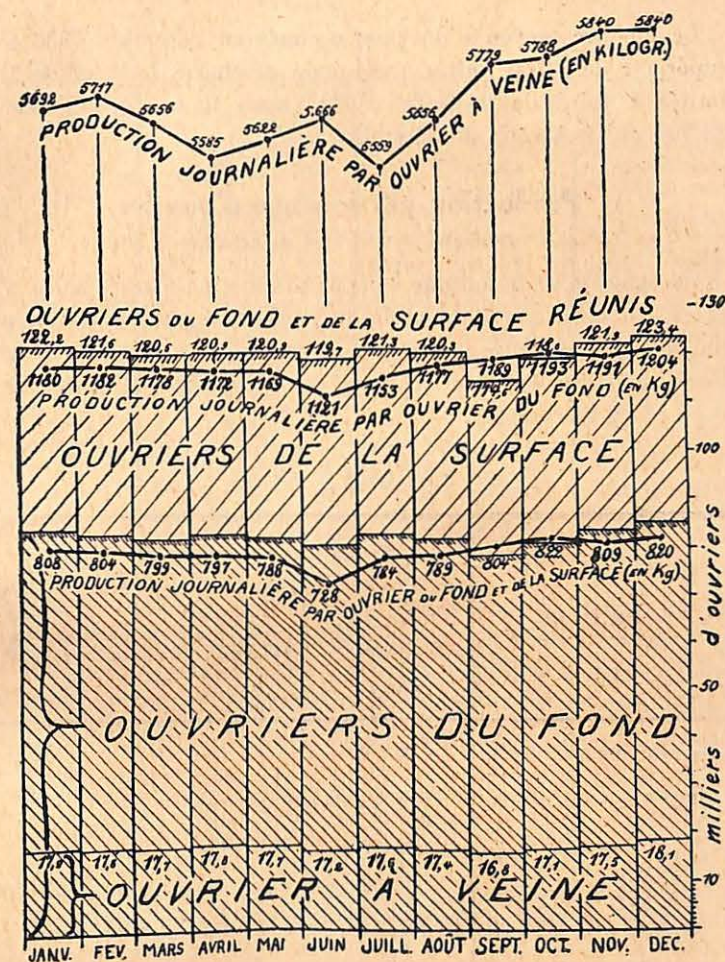 5692 5717 5656 5585 5622 5.666 5559 5656 5779 5788 5840 5840
PRODUCTION JOURNALIÈRE PAR OUVRIER À VEINE (EN KILOGR.)
OUVRIERS DU FOND ET DE LA SURFACE RÉUNIS
-130
122,2 121,6 120,5 120,9 120,9 119,7 121,3 120,3 121,9 123,4
1180 1182 1178 1172 1169 1121 1153 1177 1189 1193 1191 1204
PRODUCTION JOURNALIÈRE PAR OUVRIER DU FOND (EN Kg)
OUVRIERS DE LA SURFACE
100
808 804 799 797 788 728 784 789 804 822 809 820
PRODUCTION JOURNALIÈRE PAR OUVRIER DU FOND ET DE LA SURFACE (EN Kg)
50
OUVRIERS DU FOND
milliers d'ouvriers
17,7 17,7 17,2 17,4 16,8 17,1 17,5 18,1
10
OUVRIER A VEINE
JANV. FEV. MARS AVRIL MAI JUIN JUILL. AOÛT SEPT. OCT. NOV. DEC.